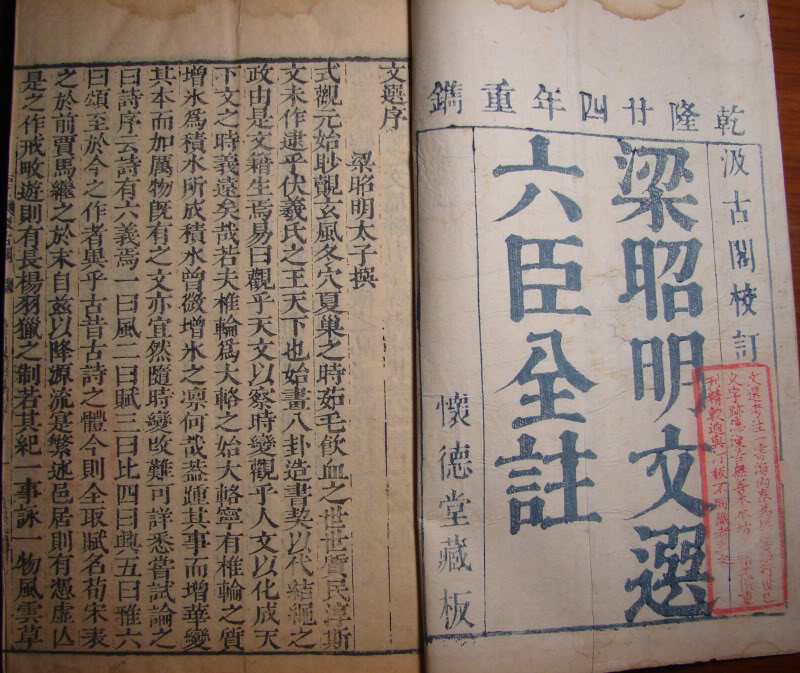 乾隆廿四年重鐫
汲古閣校訂
梁昭明文選
六臣全註
懷德堂藏板
文選考注一書海內
文選序
梁昭明太子撰
式觀元始眇覿玄風冬穴夏巢之時茹毛飲血之世世質民淳斯
文未作逮乎伏羲氏之王天下也始畫八卦造書契以代結繩之
政由是文籍生焉易曰觀乎天文以察時變觀乎人文以化成天
下文之時義遠矣哉若夫椎輪爲大輅之始大輅寧有椎輪之質
增氷爲積水所成積水曾微增氷之凛何哉蓋踵其事而增華變
其本而加厲物既有之文亦宜然隨時變改難可詳悉嘗試論之
曰詩序云詩有六義焉一曰風二曰賦三曰比四曰興五曰雅六
曰頌至於今之作者異乎古昔古詩之體今則全取賦名荀宋表
之於前賈馬繼之於末自兹以降源流寔繁述邑居則有憑虛亾
是之作戒畋遊則有長楊羽獵之制若其紀一事詠一物風雲草